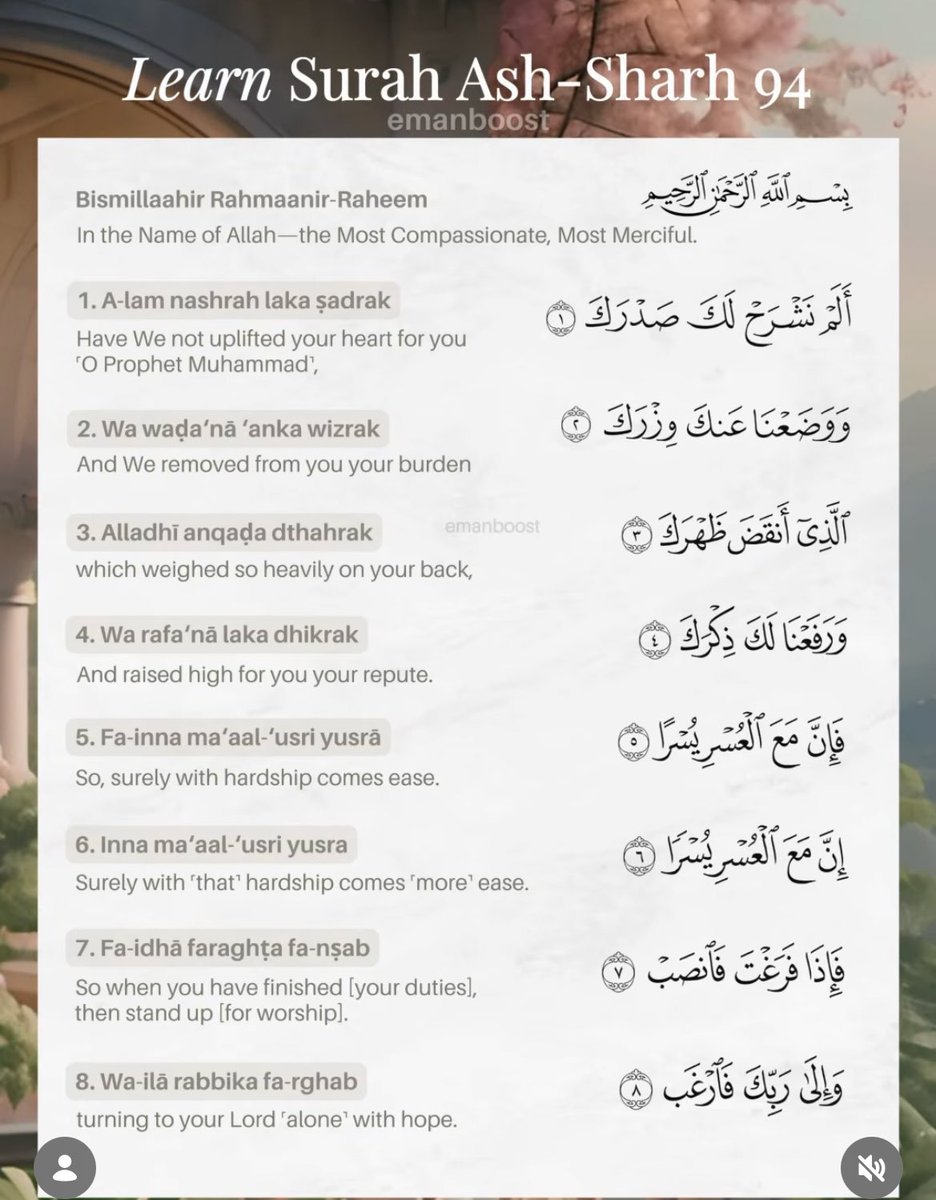 Learn Surah Ash-Sharh 94
emanboost
Bismillaahir Rahmaanir-Raheem
بِسْمِ ٱللَّهِ ٱلرَّحْمَٰنِ ٱلرَّحِيمِ
In the Name of Allah—the Most Compassionate, Most Merciful.
1. A-lam nashrah laka ṣadrak
أَلَمْ نَشْرَحْ لَكَ صَدْرَكَ ١
Have We not uplifted your heart for you
˹O Prophet Muhammad˺,
2. Wa waḍa‘nā ‘anka wizrak
وَوَضَعْنَا عَنكَ وِزْرَكَ ٢
And We removed from you your burden
3. Alladhī anqaḍa dthahrak
emanboost
ٱلَّذِىٓ أَنقَضَ ظَهْرَكَ ٣
which weighed so heavily on your back,
4. Wa rafa‘nā laka dhikrak
وَرَفَعْنَا لَكَ ذِكْرَكَ ٤
And raised high for you your repute.
5. Fa-inna ma‘aal-‘usri yusrā
فَإِنَّ مَعَ ٱلْعُسْرِ يُسْرًا ٥
So, surely with hardship comes ease.
6. Inna ma‘aal-‘usri yusra
إِنَّ مَعَ ٱلْعُسْرِ يُسْرًا ٦
Surely with ˹that˺ hardship comes ˹more˺ ease.
7. Fa-idhā faraghṭa fa-nṣab
فَإِذَا فَرَغْتَ فَٱنصَبْ ٧
So when you have finished [your duties],
then stand up [for worship].
8. Wa-ilā rabbika fa-rghab
وَإِلَىٰ رَبِّكَ فَٱرْغَب ٨
turning to your Lord ˹alone˺ with hope.